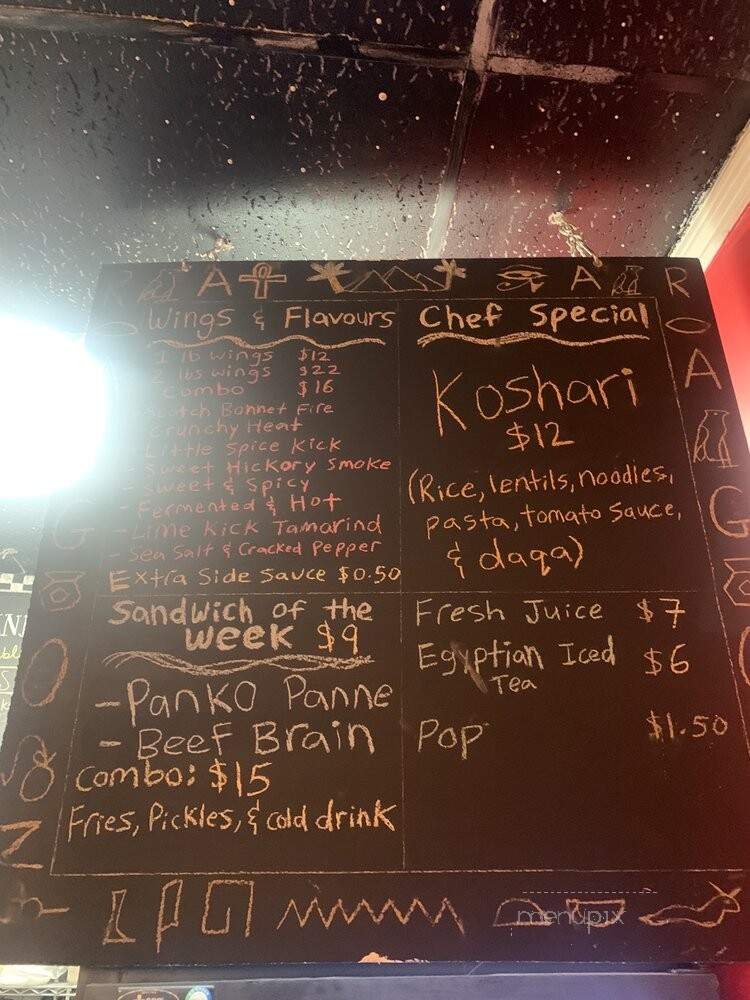 Wings & Flavours
1 lb wings $12
lbs wings $22
Combo $16
Scotch Bonnet Fire
Crunchy Heat
Little Spice Kick
- Sweet Hickory Smoke
- Sweet & Spicy
- Fermented & Hot
- Lime Kick Tamarind
- Sea Salt & Cracked Pepper
Extra Side Sauce $0.50
Chef Special
Koshari
$12
(Rice, lentils, noodles,
pasta, tomato sauce,
& daqa)
Sandwich of the
week $9
- Panko Panne
- Beef Brain
Combo: $15
Fries, Pickles, & cold drink
Fresh Juice $7
Egyptian Iced
Tea $6
Pop $1.50
menupix